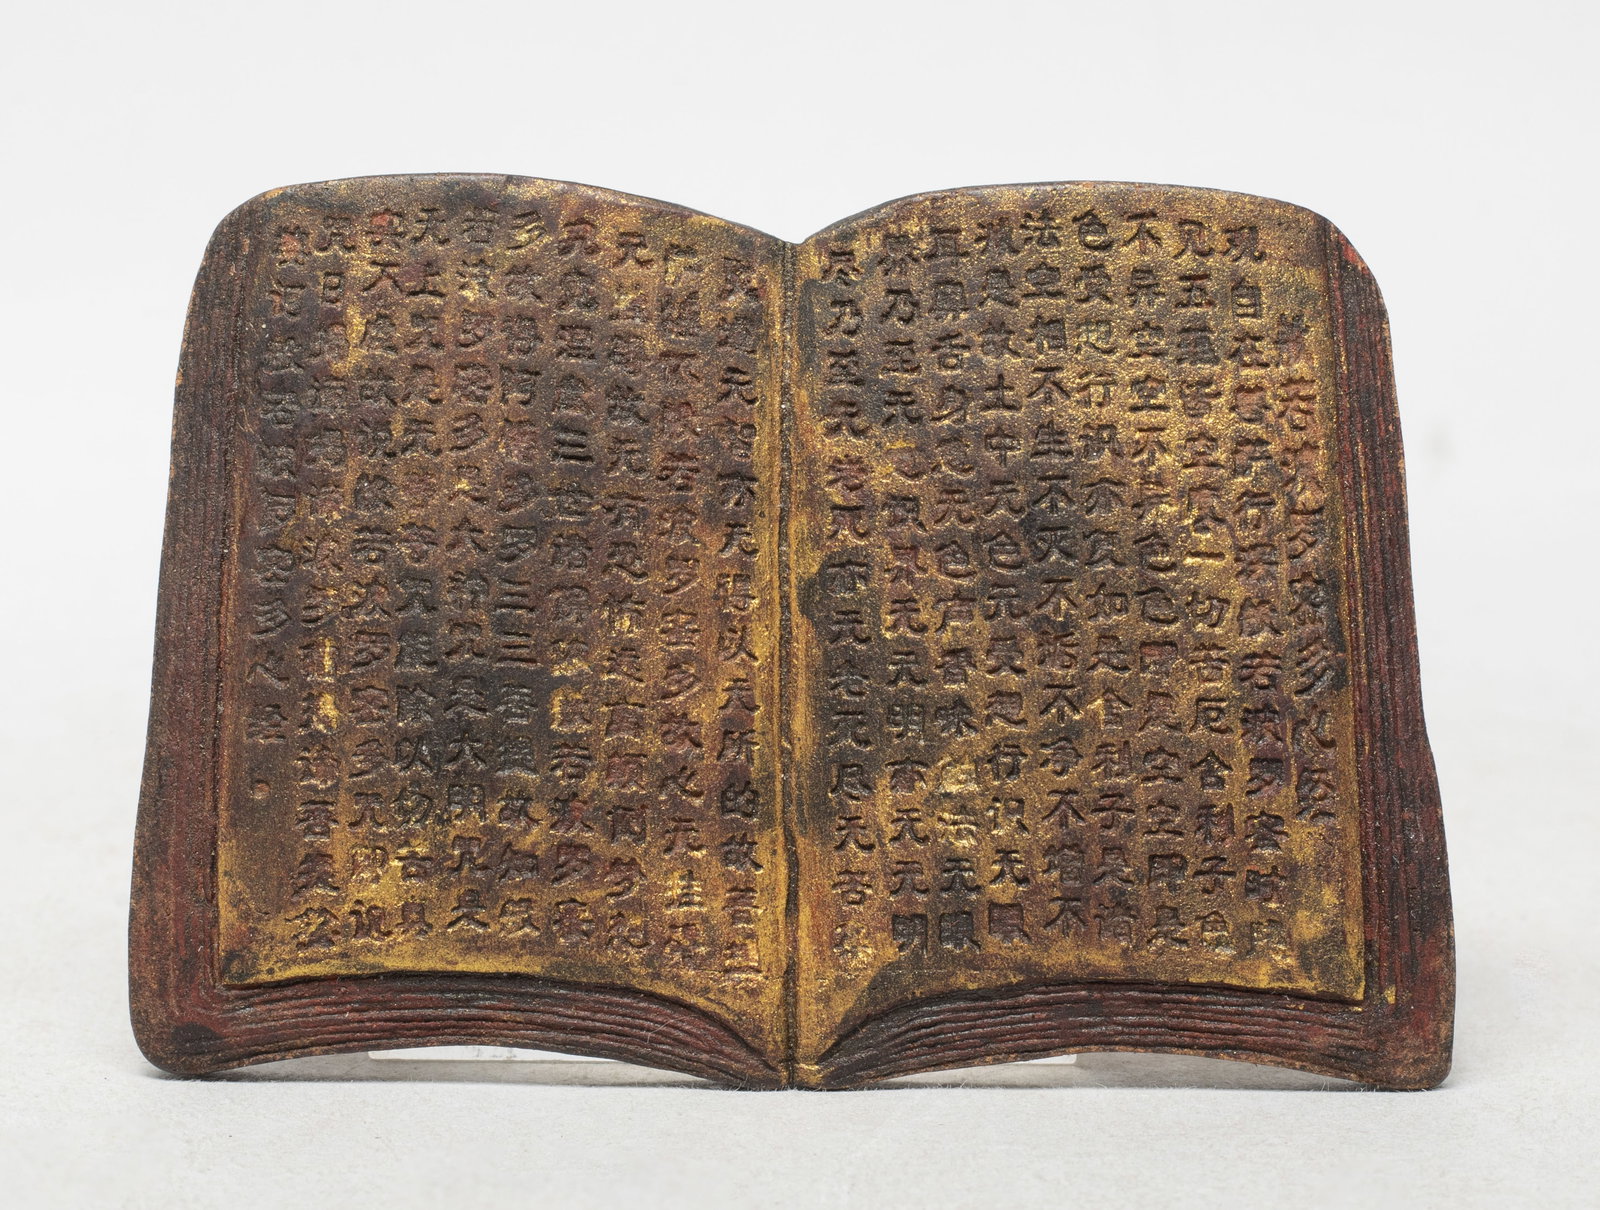 般若波罗蜜多心经
观自在菩萨行深般若波罗蜜时照
见五蕴皆空度一切苦厄舍利子色
不异空空不异色色即是空空即是
色受想行识亦复如是舍利子是诸
法空相不生不灭不垢不净不增不
减是故土中无色无受想行识无眼
耳鼻舌身意无色声香味触法无眼
界乃至无意识界无无明亦无无明
尽乃至无老无亦无老无尽无苦集
灭道无智亦无得以无所的故菩提
萨埵依般若波罗蜜多故心无挂碍
无挂碍故无有恐怖远离颠倒梦想
究涅槃三世诸佛般若波罗蜜
多故得阿耨多罗三三菩提故知般
若波罗蜜多是大神咒是大明咒是
无上咒是无等等咒能除以切古具
实不虚故说般若波罗蜜多咒即说
咒曰揭谛揭谛波罗揭谛菩
般若波罗蜜多心经